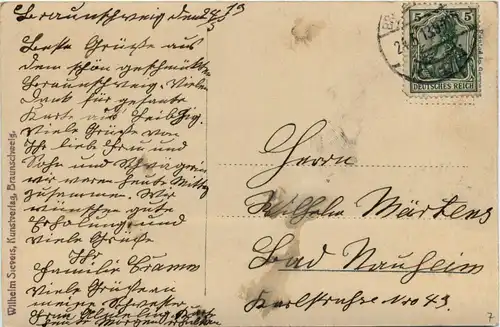 Braunschweig den 24/5 13
Beste Grüße aus
dem schön geschmückten
Braunschweig. Vielen
Dank für gesante
Karte aus
Viele Grüße von
Ihr liebe Frau und
Sohn und Schwägerin
wir waren heute Mittag
zusammen. Wir
wünschen gute
Erholung und
viele Grüße
Ihr
Familie Cramm
Viele Grüße an
meine Schwester
Frau
heute Morgen
Wilhelm Sievers, Kunstverlag, Braunschweig.
5 5
DEUTSCHES REICH
Herrn
Wilhelm Märtens
Bad Nauheim
Karlstraße No 43.
7